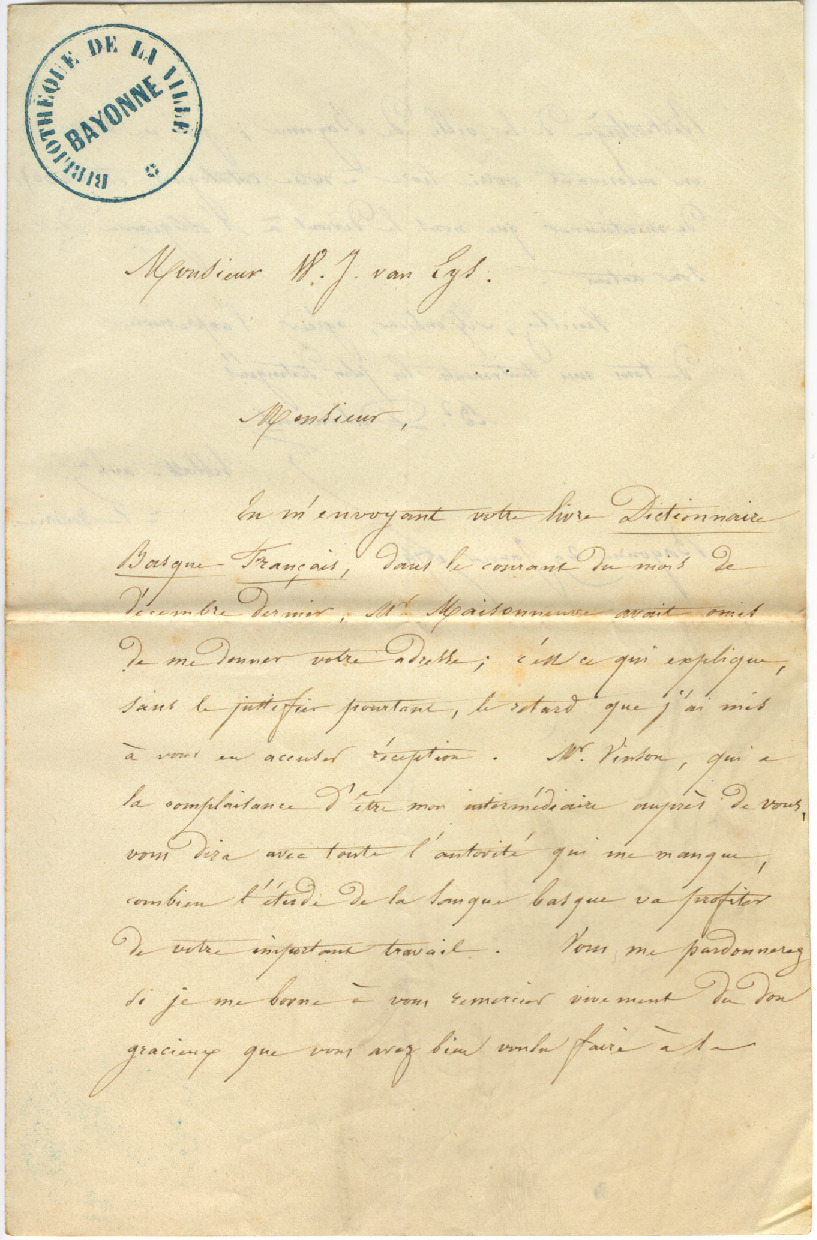 BIBLIOTHEQUE DE LA VILLE
BAYONNE
Monsieur W. J. van Eys.
Monsieur,
En m'envoyant votre livre Dictionnaire
Basque Français, dans le courant du mois de
décembre dernier, Mr Maisonneuve avait omis
de me donner votre adresse; c'est ce qui explique,
sans le justifier pourtant, le retard que j'ai mis
à vous en accuser réception. Mr. Vinson, qui a
la complaisance d'être mon intermédiaire auprès de vous,
vous dira avec toute l'autorité qui me manque,
combien l'étude de la langue basque va profiter
de votre important travail. Vous me pardonnerez
si je me borne à vous remercier vivement du don
gracieux que vous avez bien voulu faire à la